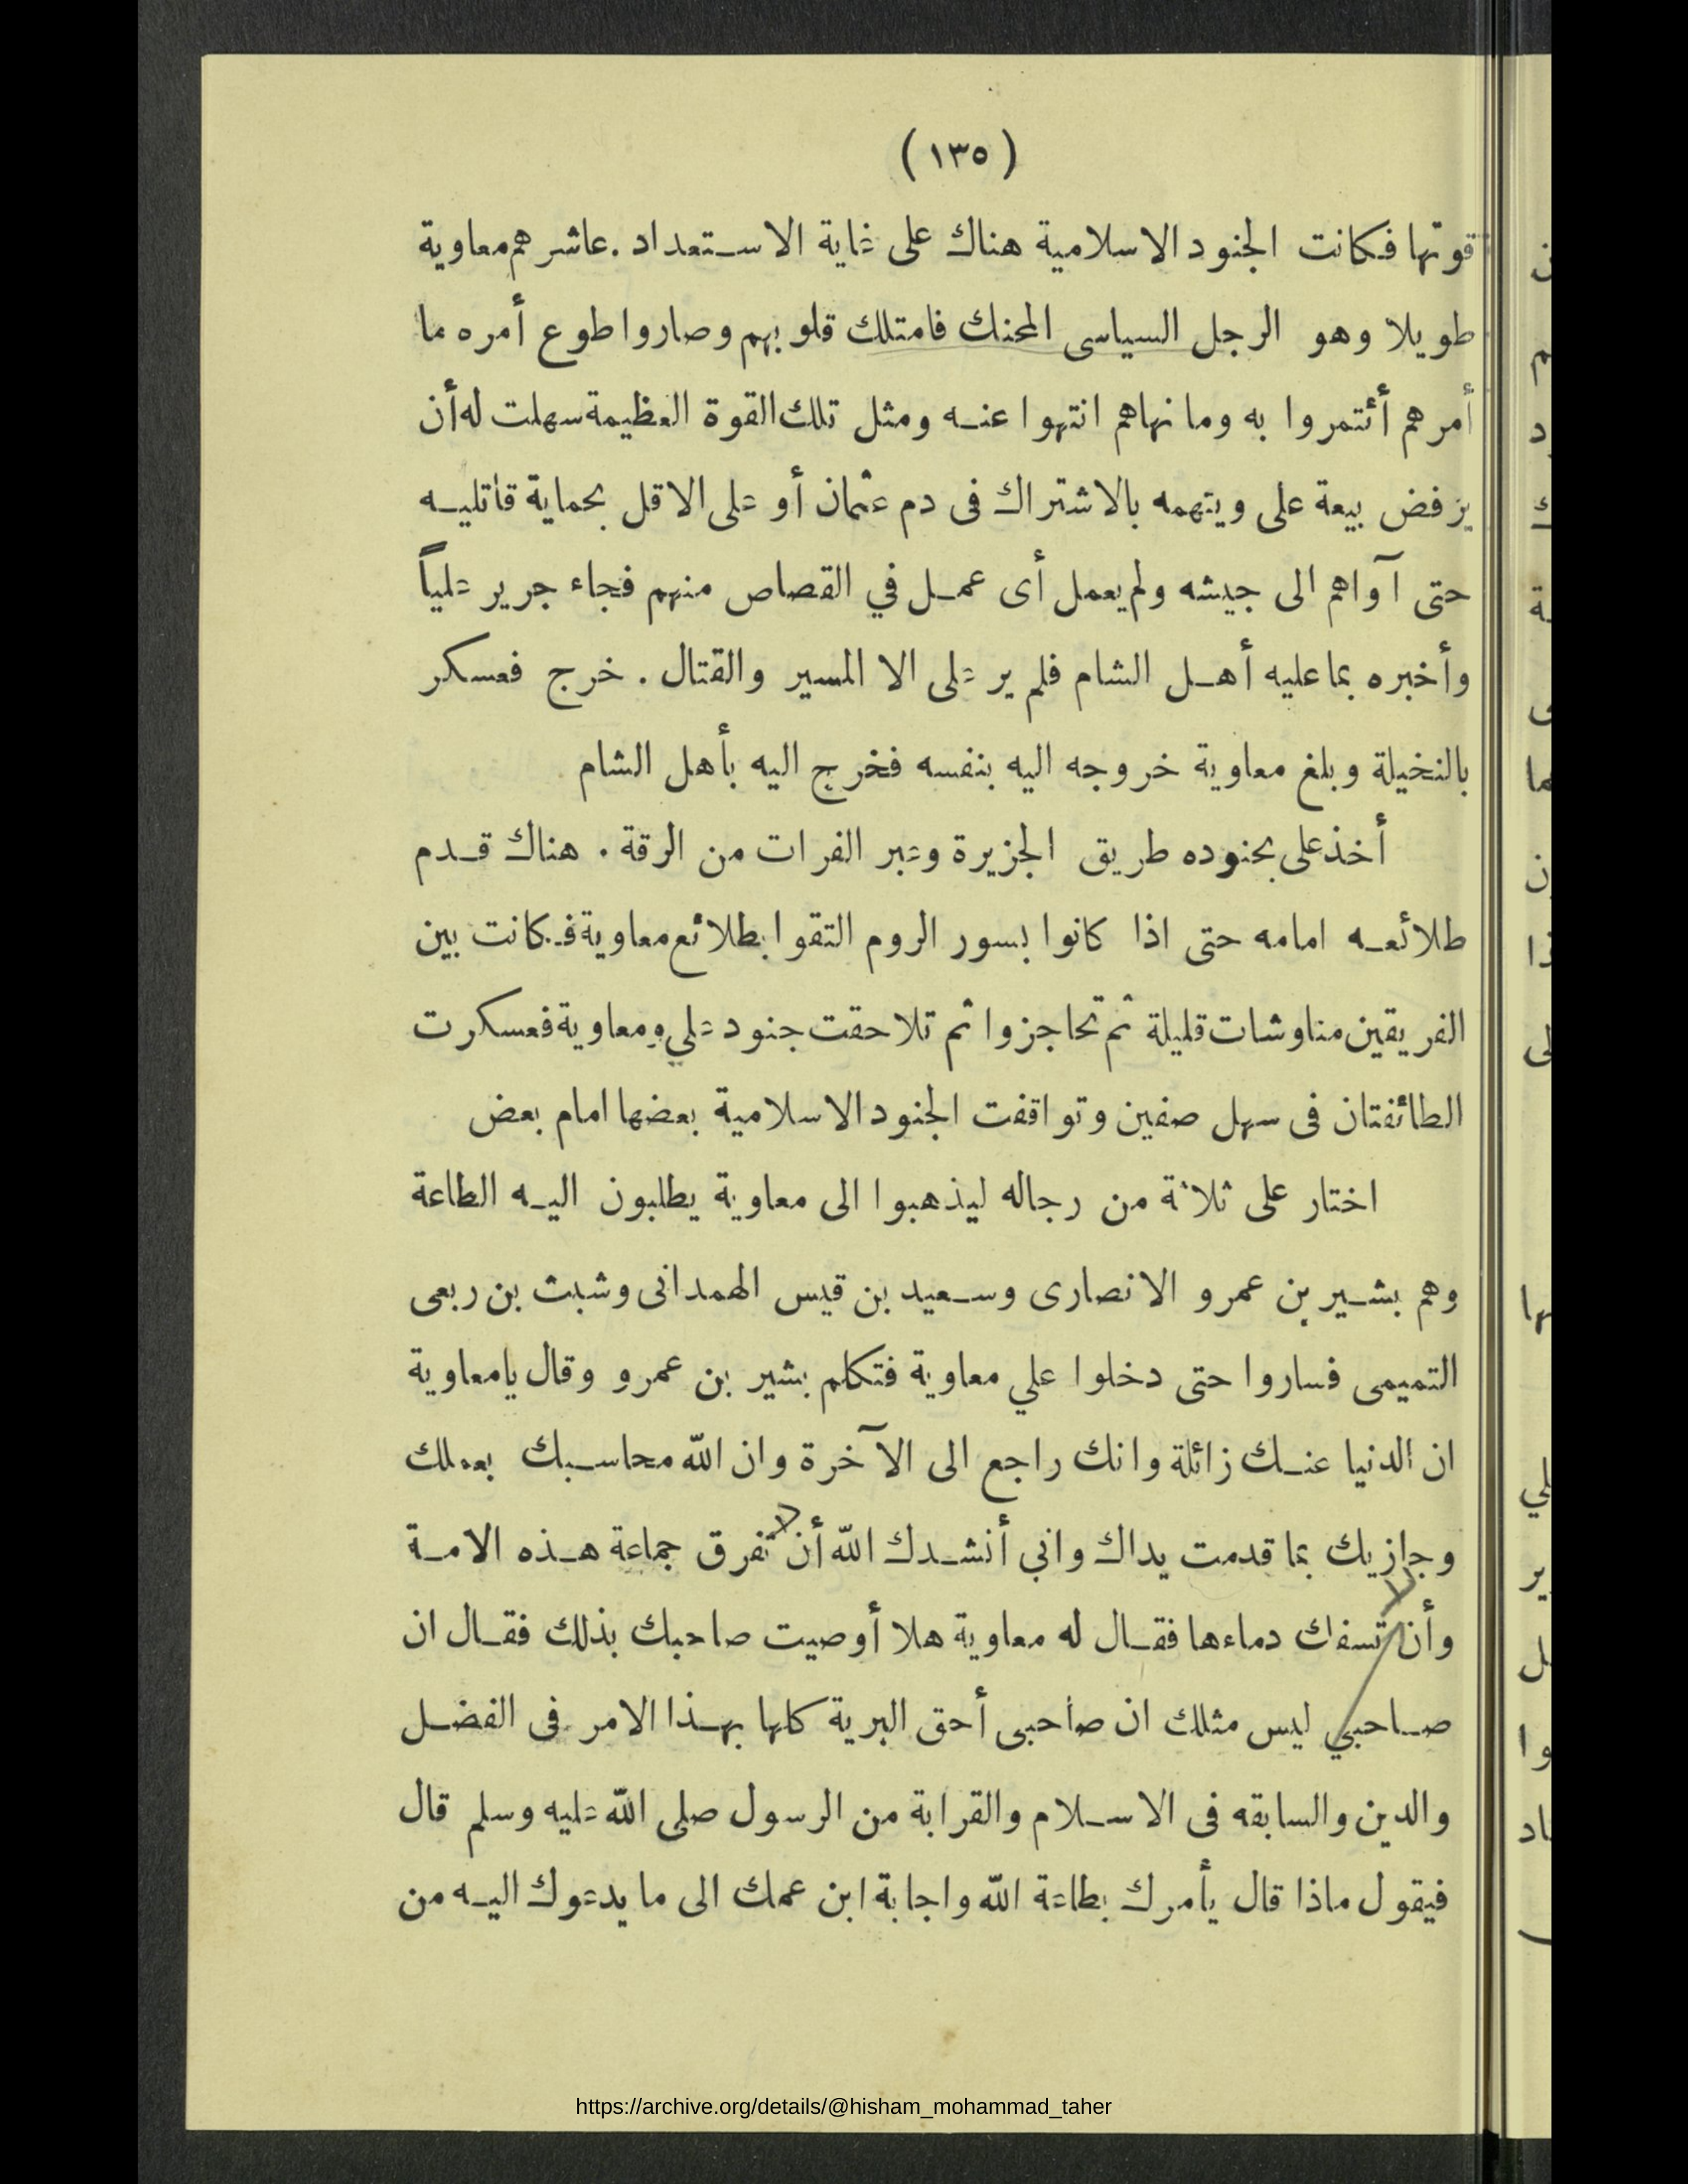 ( ١٣٥ )
قوتها فكانت الجنود الاسلامية هناك على غاية الاستعداد . عاشرهم معاوية
طويلا وهو الرجل السياسى المحنك فامتلك قلوبهم وصاروا طوع أمره ما
أمرهم أئتمروا به وما نهاهم انتهوا عنه ومثل تلك القوة العظيمة سهلت له أن
يرفض بيعة على ويتهمه بالاشتراك فى دم عثمان أو على الاقل بحماية قاتليه
حتى آواهم الى جيشه ولم يعمل أى عمل في القصاص منهم فجاء جرير علياً
وأخبره بما عليه أهل الشام فلم ير على الا المسير والقتال . خرج فعسكر
بالنخيلة وبلغ معاوية خروجه اليه بنفسه فخرج اليه بأهل الشام
أخذ على بجنوده طريق الجزيرة وعبر الفرات من الرقة . هناك قدم
طلائعه امامه حتى اذا كانوا بسور الروم التقوا بطلائع معاوية فكانت بين
الفريقين مناوشات قليلة ثم تحاجزوا ثم تلاحقت جنود علي ومعاوية فعسكرت
الطائفتان فى سهل صفين وتواقفت الجنود الاسلامية بعضها امام بعض
اختار على ثلاثة من رجاله ليذهبوا الى معاوية يطلبون اليه الطاعة
وهم بشير بن عمرو الانصارى وسعيد بن قيس الهمدانى وشبث بن ربعى
التميمى فساروا حتى دخلوا علي معاوية فتكلم بشير بن عمرو وقال يامعاوية
ان الدنيا عنك زائلة وانك راجع الى الآخرة وان الله محاسبك بعملك
وجازيك بما قدمت يداك واني أنشدك الله أن لا تفرق جماعة هذه الامة
وأن لا تسفك دماءها فقال له معاوية هلا أوصيت صاحبك بذلك فقال ان
صاحبي ليس مثلك ان صاحبى أحق البرية كلها بهذا الامر فى الفضل
والدين والسابقه فى الاسلام والقرابة من الرسول صلى الله عليه وسلم قال
فيقول ماذا قال يأمرك بطاعة الله واجابة ابن عمك الى ما يدعوك اليه من
https://archive.org/details/@hisham_mohammad_taher